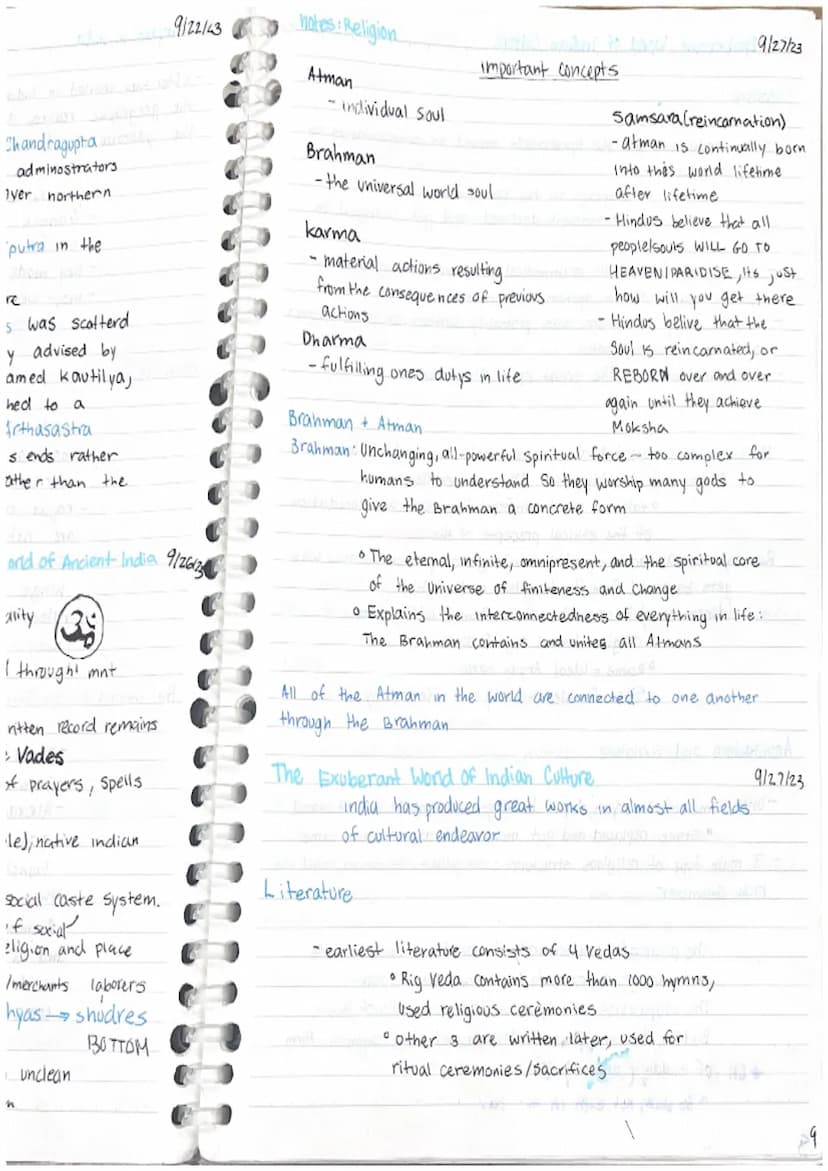 9/22/23
Chandragupta
adminostrators
over northern
putra in the
re
s was scatterd
y advised by
amed Kautilya,
hed to a
Arthasastra
s ends rather
ather than the
orld of Ancient India 9/26/23
ality ॐ
l through! mnt
ritten record remains
: Vades
of prayers, spells
le), native indian
social caste system.
of social
eligion and place
/merchants laborers
hyas → shudres
BOTTOM
unclean
n
notes: Religion
9/27/23
important concepts
Atman
- individual soul
Brahman
- the universal world soul
Karma
- material actions resulting
from the consequences of previous
actions
Dharma
- fulfilling ones dutys in life
Samsara (reincarnation)
- atman is continually born
into this world lifetime
after lifetime
- Hindus believe that all
people/souls WILL GO TO
HEAVEN/PARIDISE, its just
how will you get there
- Hindus belive that the
Soul is reincarnated, or
REBORN over and over
again until they achieve
Moksha
Brahman + Atman
Brahman: Unchanging, all-powerful spiritual force - too complex for
humans to understand so they worship many gods to
give the Brahman a concrete form
° The eternal, infinite, omnipresent, and the spiritual core
of the Universe of finiteness and change
° Explains the interconnectedness of everything in life:
The Brahman contains and unites all Atmans
All of the Atman in the world are connected to one another
through the Brahman
The Exuberant World of Indian Culture 9/27/23
india has produced great works in almost all fields
of cultural endeavor
Literature
- earliest literature consists of 4 Vedas
° Rig Veda contains more than 1000 hymns,
used religious ceremonies
° other 3 are written later, used for
ritual ceremonies/sacrifices
9